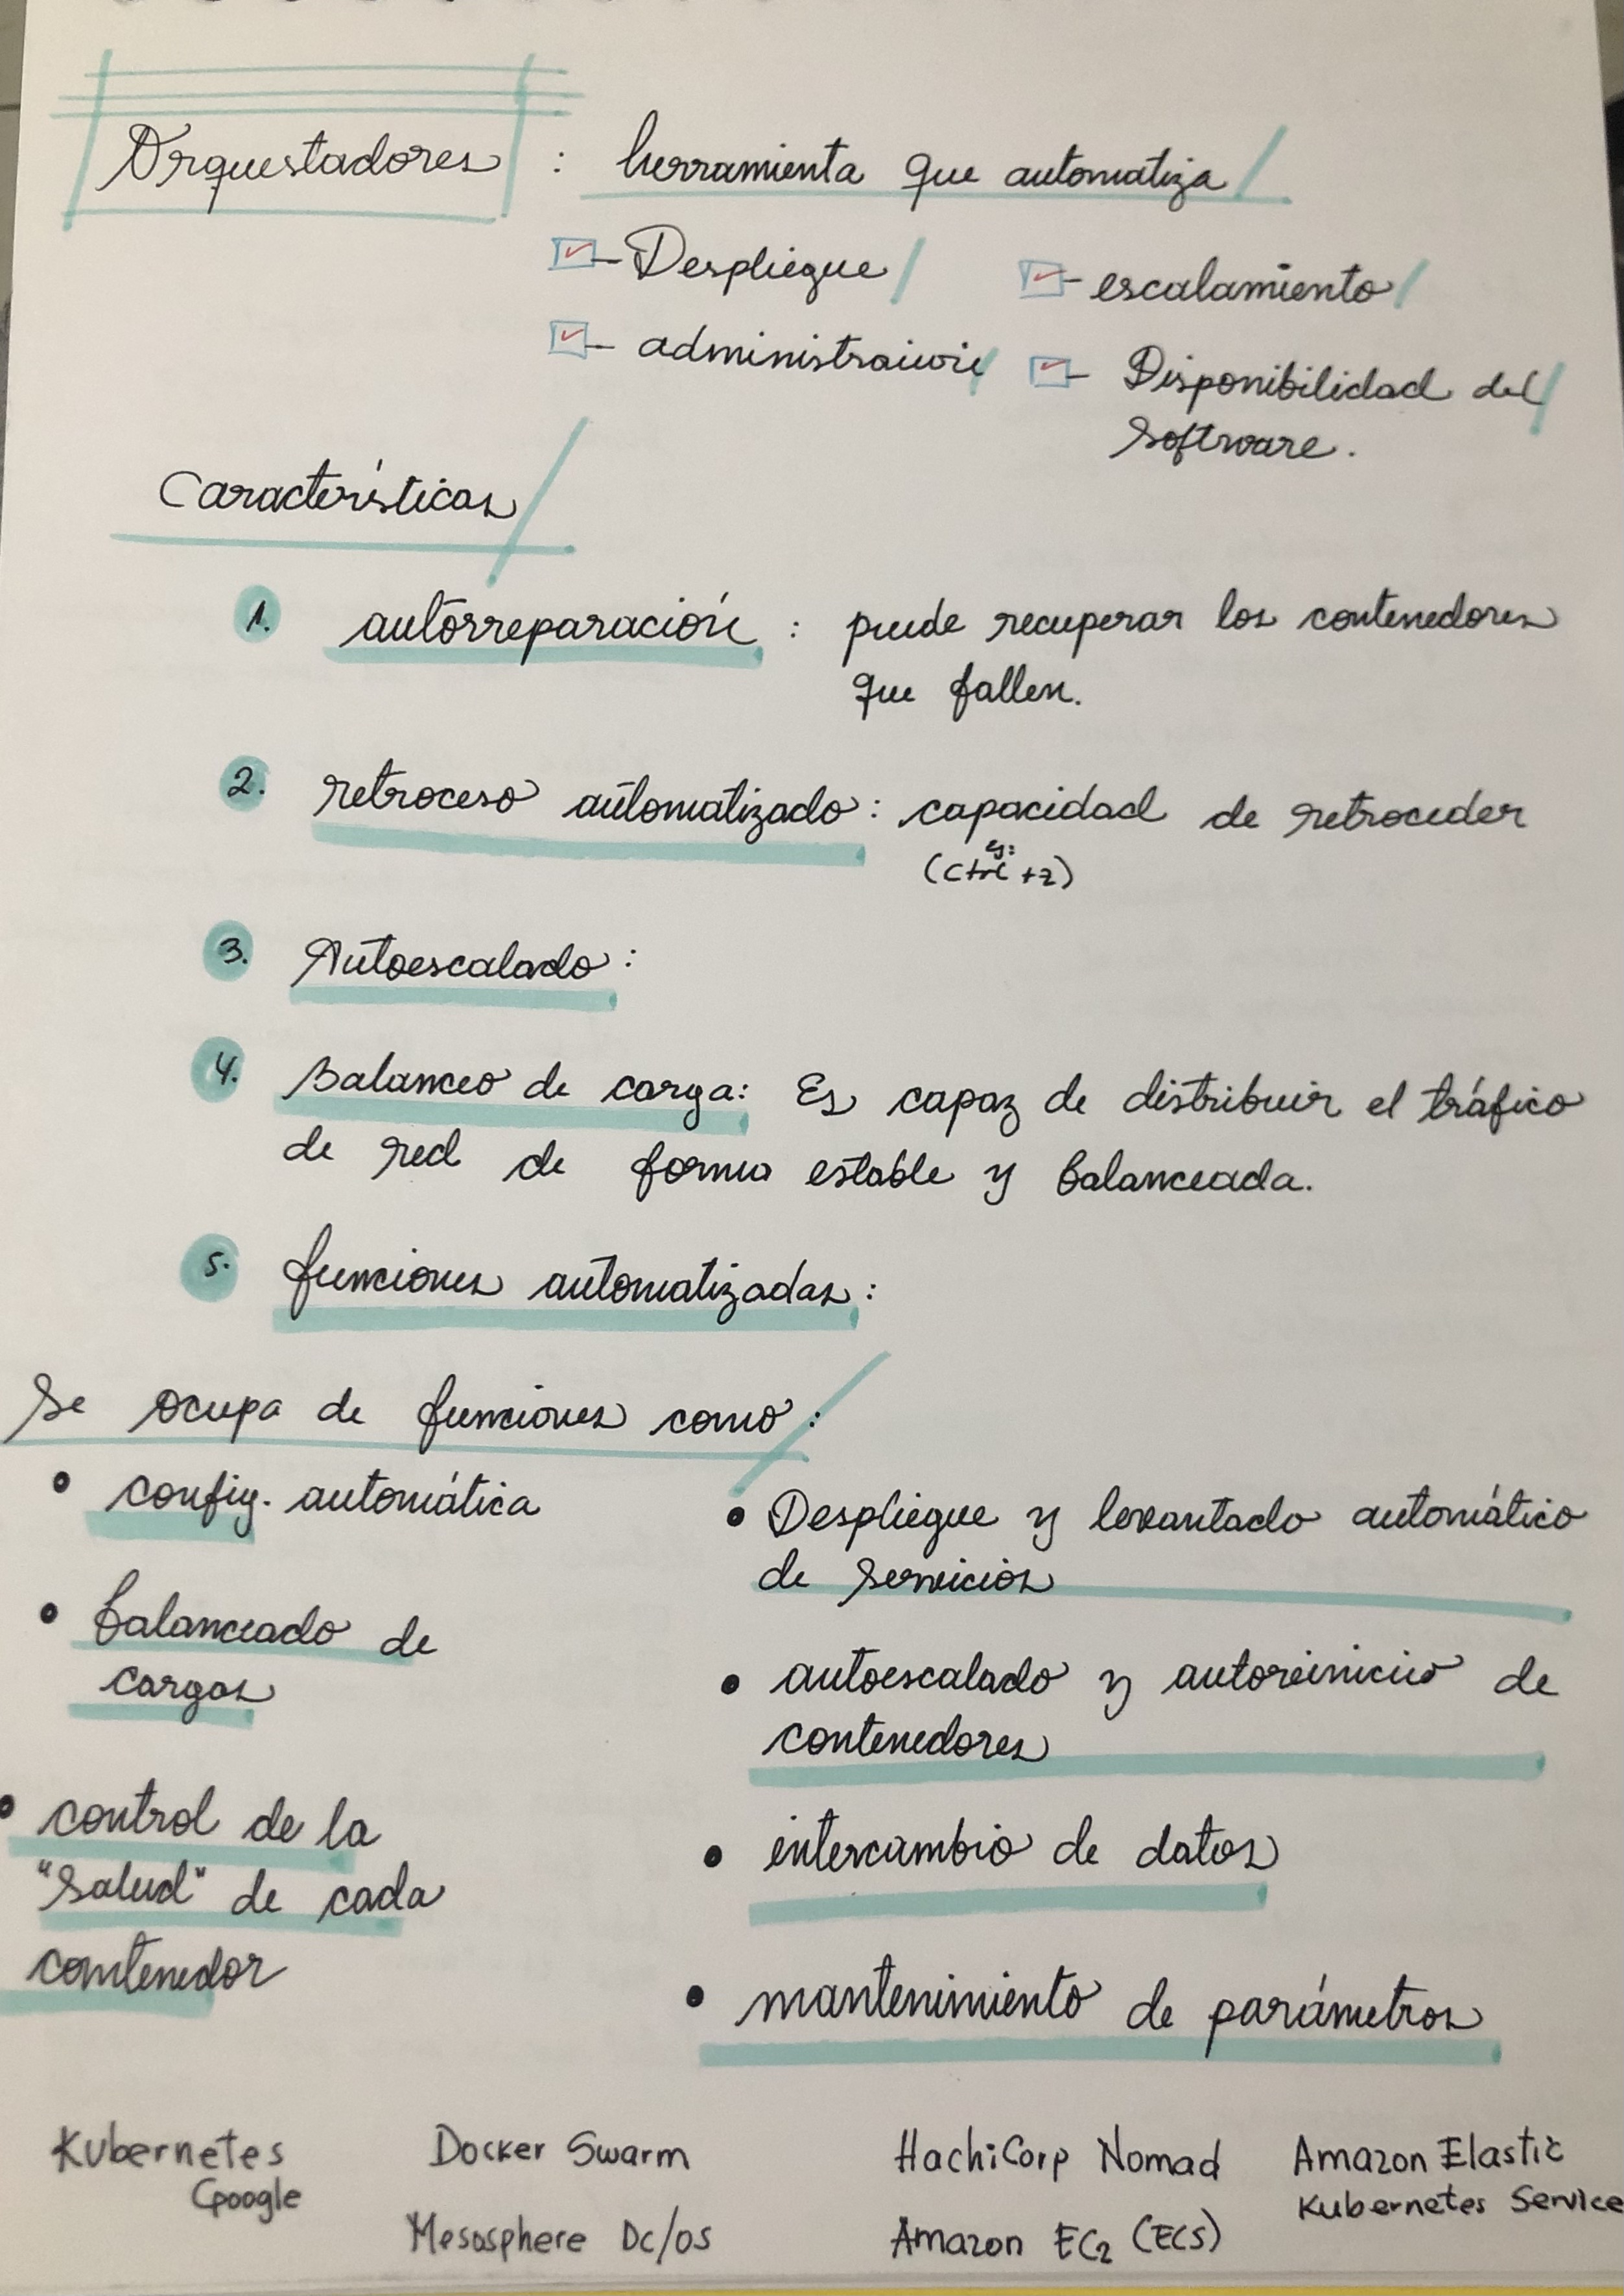 Orquestadores : herramienta que automatiza
- Despliegue
- escalamiento
- administración
- Disponibilidad del
software.
Características
1. autorreparación : puede recuperar los contenedores
que fallen.
2. retroceso automatizado : capacidad de retroceder
ej:
(ctrl +z)
3. Autoescalado :
4. Balanceo de carga: Es capaz de distribuir el tráfico
de red de forma estable y balanceada.
5. funciones automatizadas :
Se ocupa de funciones como :
• config. automática
• balanceado de
cargas
• control de la
"salud" de cada
contenedor
• Despliegue y levantado automático
de servicios
• autoescalado y autoreinicio de
contenedores
• intercambio de datos
• mantenimiento de parámetros
Kubernetes
Google
Docker Swarm
Mesosphere Dc/os
HachiCorp Nomad
Amazon EC2 (ECS)
Amazon Elastic
Kubernetes Service